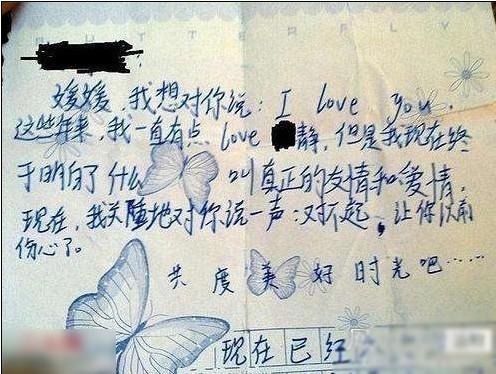 BUTTERFLY
媛媛，我想对你说：I love you.
这些年来，我一直有点 love 静，但是我现在终
于明白了什么 叫真正的友情和爱情，
现在，我关隆地对你说一声：对不起，让你以前
伤心了。
共度美好时光吧……
现在已经